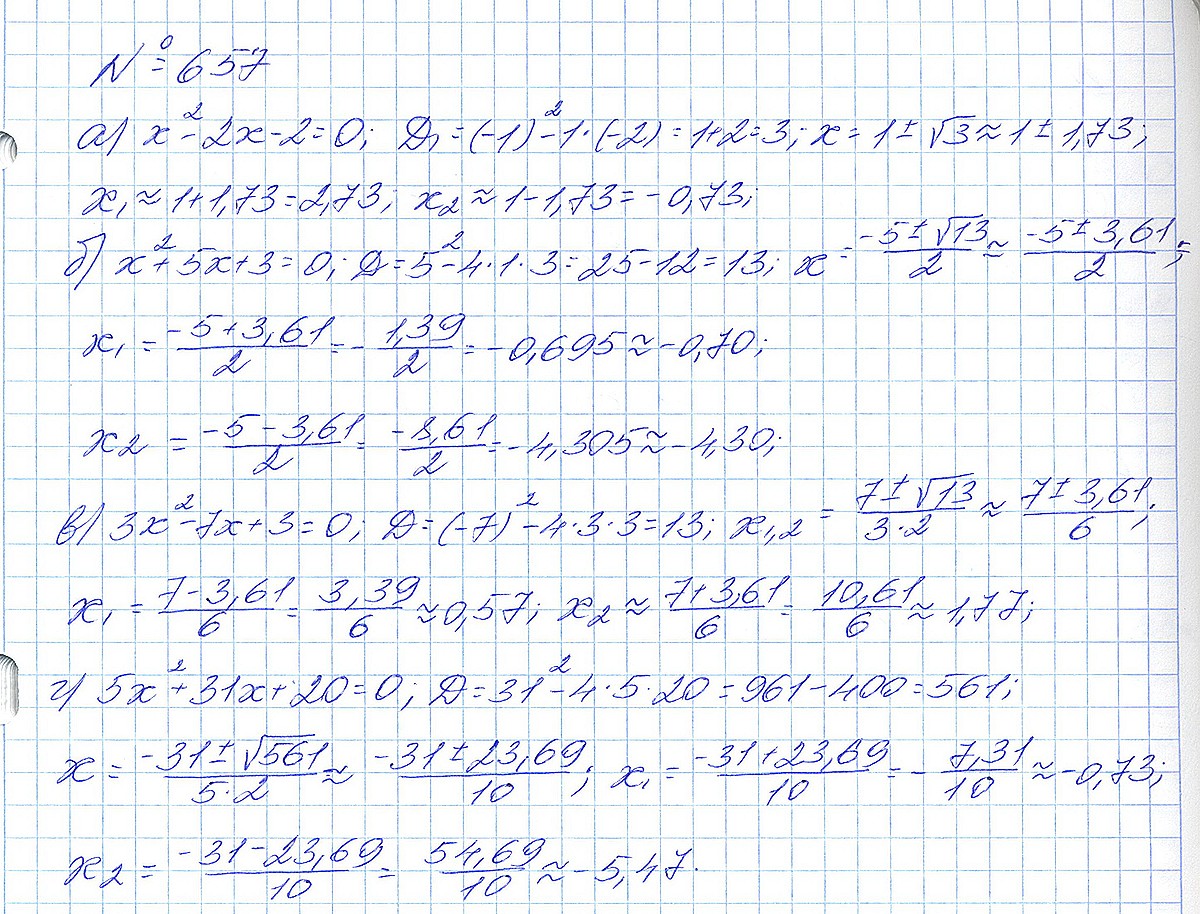 № 657
а) x² - 2x - 2 = 0; D₁ = (-1)² - 1·(-2) = 1+2 = 3; x = 1 ± √3 ≈ 1 ± 1,73;
x₁ ≈ 1+1,73 = 2,73; x₂ ≈ 1-1,73 = -0,73;
б) x² + 5x + 3 = 0; D = 5² - 4·1·3 = 25-12 = 13; x = (-5 ± √13)/2 ≈ (-5 ± 3,61)/2;
x₁ = (-5+3,61)/2 = -1,39/2 = -0,695 ≈ -0,70;
x₂ = (-5-3,61)/2 = -8,61/2 = -4,305 ≈ -4,30;
в) 3x² - 7x + 3 = 0; D = (-7)² - 4·3·3 = 13; x₁,₂ = (7 ± √13)/(3·2) ≈ (7 ± 3,61)/6;
x₁ = (7-3,61)/6 = 3,39/6 ≈ 0,57; x₂ ≈ (7+3,61)/6 = 10,61/6 ≈ 1,77;
г) 5x² + 31x + 20 = 0; D = 31² - 4·5·20 = 961-400 = 561;
x = (-31 ± √561)/(5·2) ≈ (-31 ± 23,69)/10; x₁ = (-31+23,69)/10 = -7,31/10 ≈ -0,73;
x₂ = (-31-23,69)/10 = 54,69/10 ≈ -5,47.